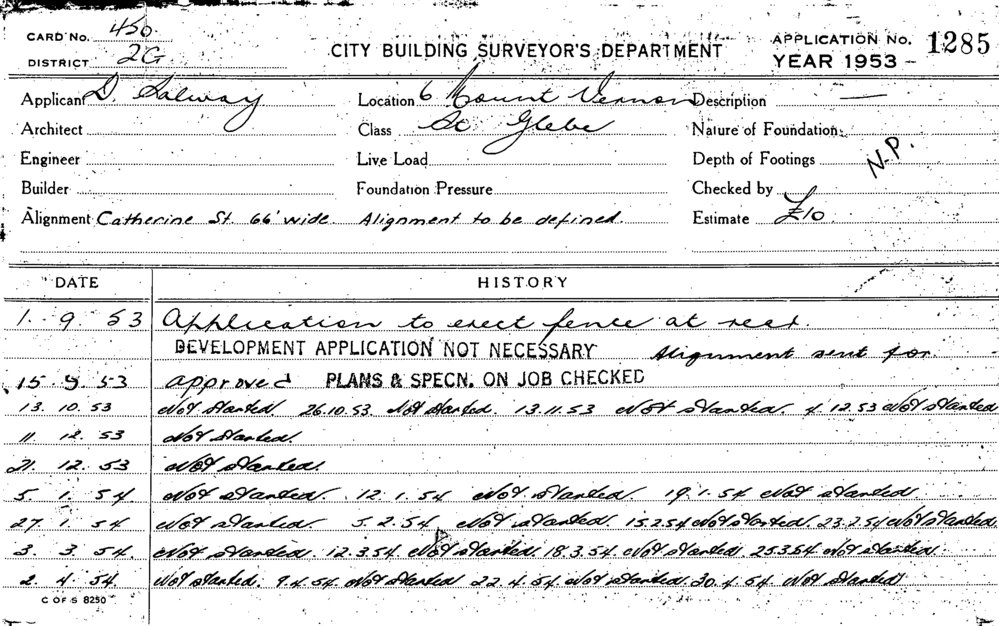 CARD No. 450
DISTRICT 2G
CITY BUILDING SURVEYOR'S DEPARTMENT
APPLICATION No. 1285
YEAR 1953 -
Applicant D. Salway Location 6 Mount Vernon Description —
Architect Class St Glebe Nature of Foundation
Engineer Live Load Depth of Footings N.P.
Builder Foundation Pressure Checked by
Alignment Catherine St. 66' wide. Alignment to be defined. Estimate £10
DATE HISTORY
1. 9. 53 Application to erect fence at rear.
DEVELOPMENT APPLICATION NOT NECESSARY Alignment sent for.
15. 9. 53 approved PLANS & SPECN. ON JOB CHECKED
13. 10. 53 Not Started 26.10.53 Not Started. 13.11.53 Not Started. 4.12.53 Not Started
11. 12. 53 Not Started.
21. 12. 53 Not Started.
5. 1. 54 Not Started. 12.1.54 Not Started. 19.1.54 Not Started
27. 1. 54 Not Started. 5.2.54 Not Started. 15.2.54 Not Started. 23.2.54 Not Started
3. 3. 54. Not Started. 12.3.54 Not Started. 18.3.54 Not Started. 25.3.54 Not Started.
2. 4. 54. Not Started. 9.4.54. Not Started 22.4.54. Not Started. 30.4.54. Not Started
C OF S 8250